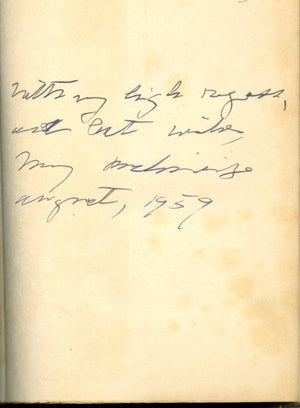 With my high regard,
and best wishes,
August, 1959